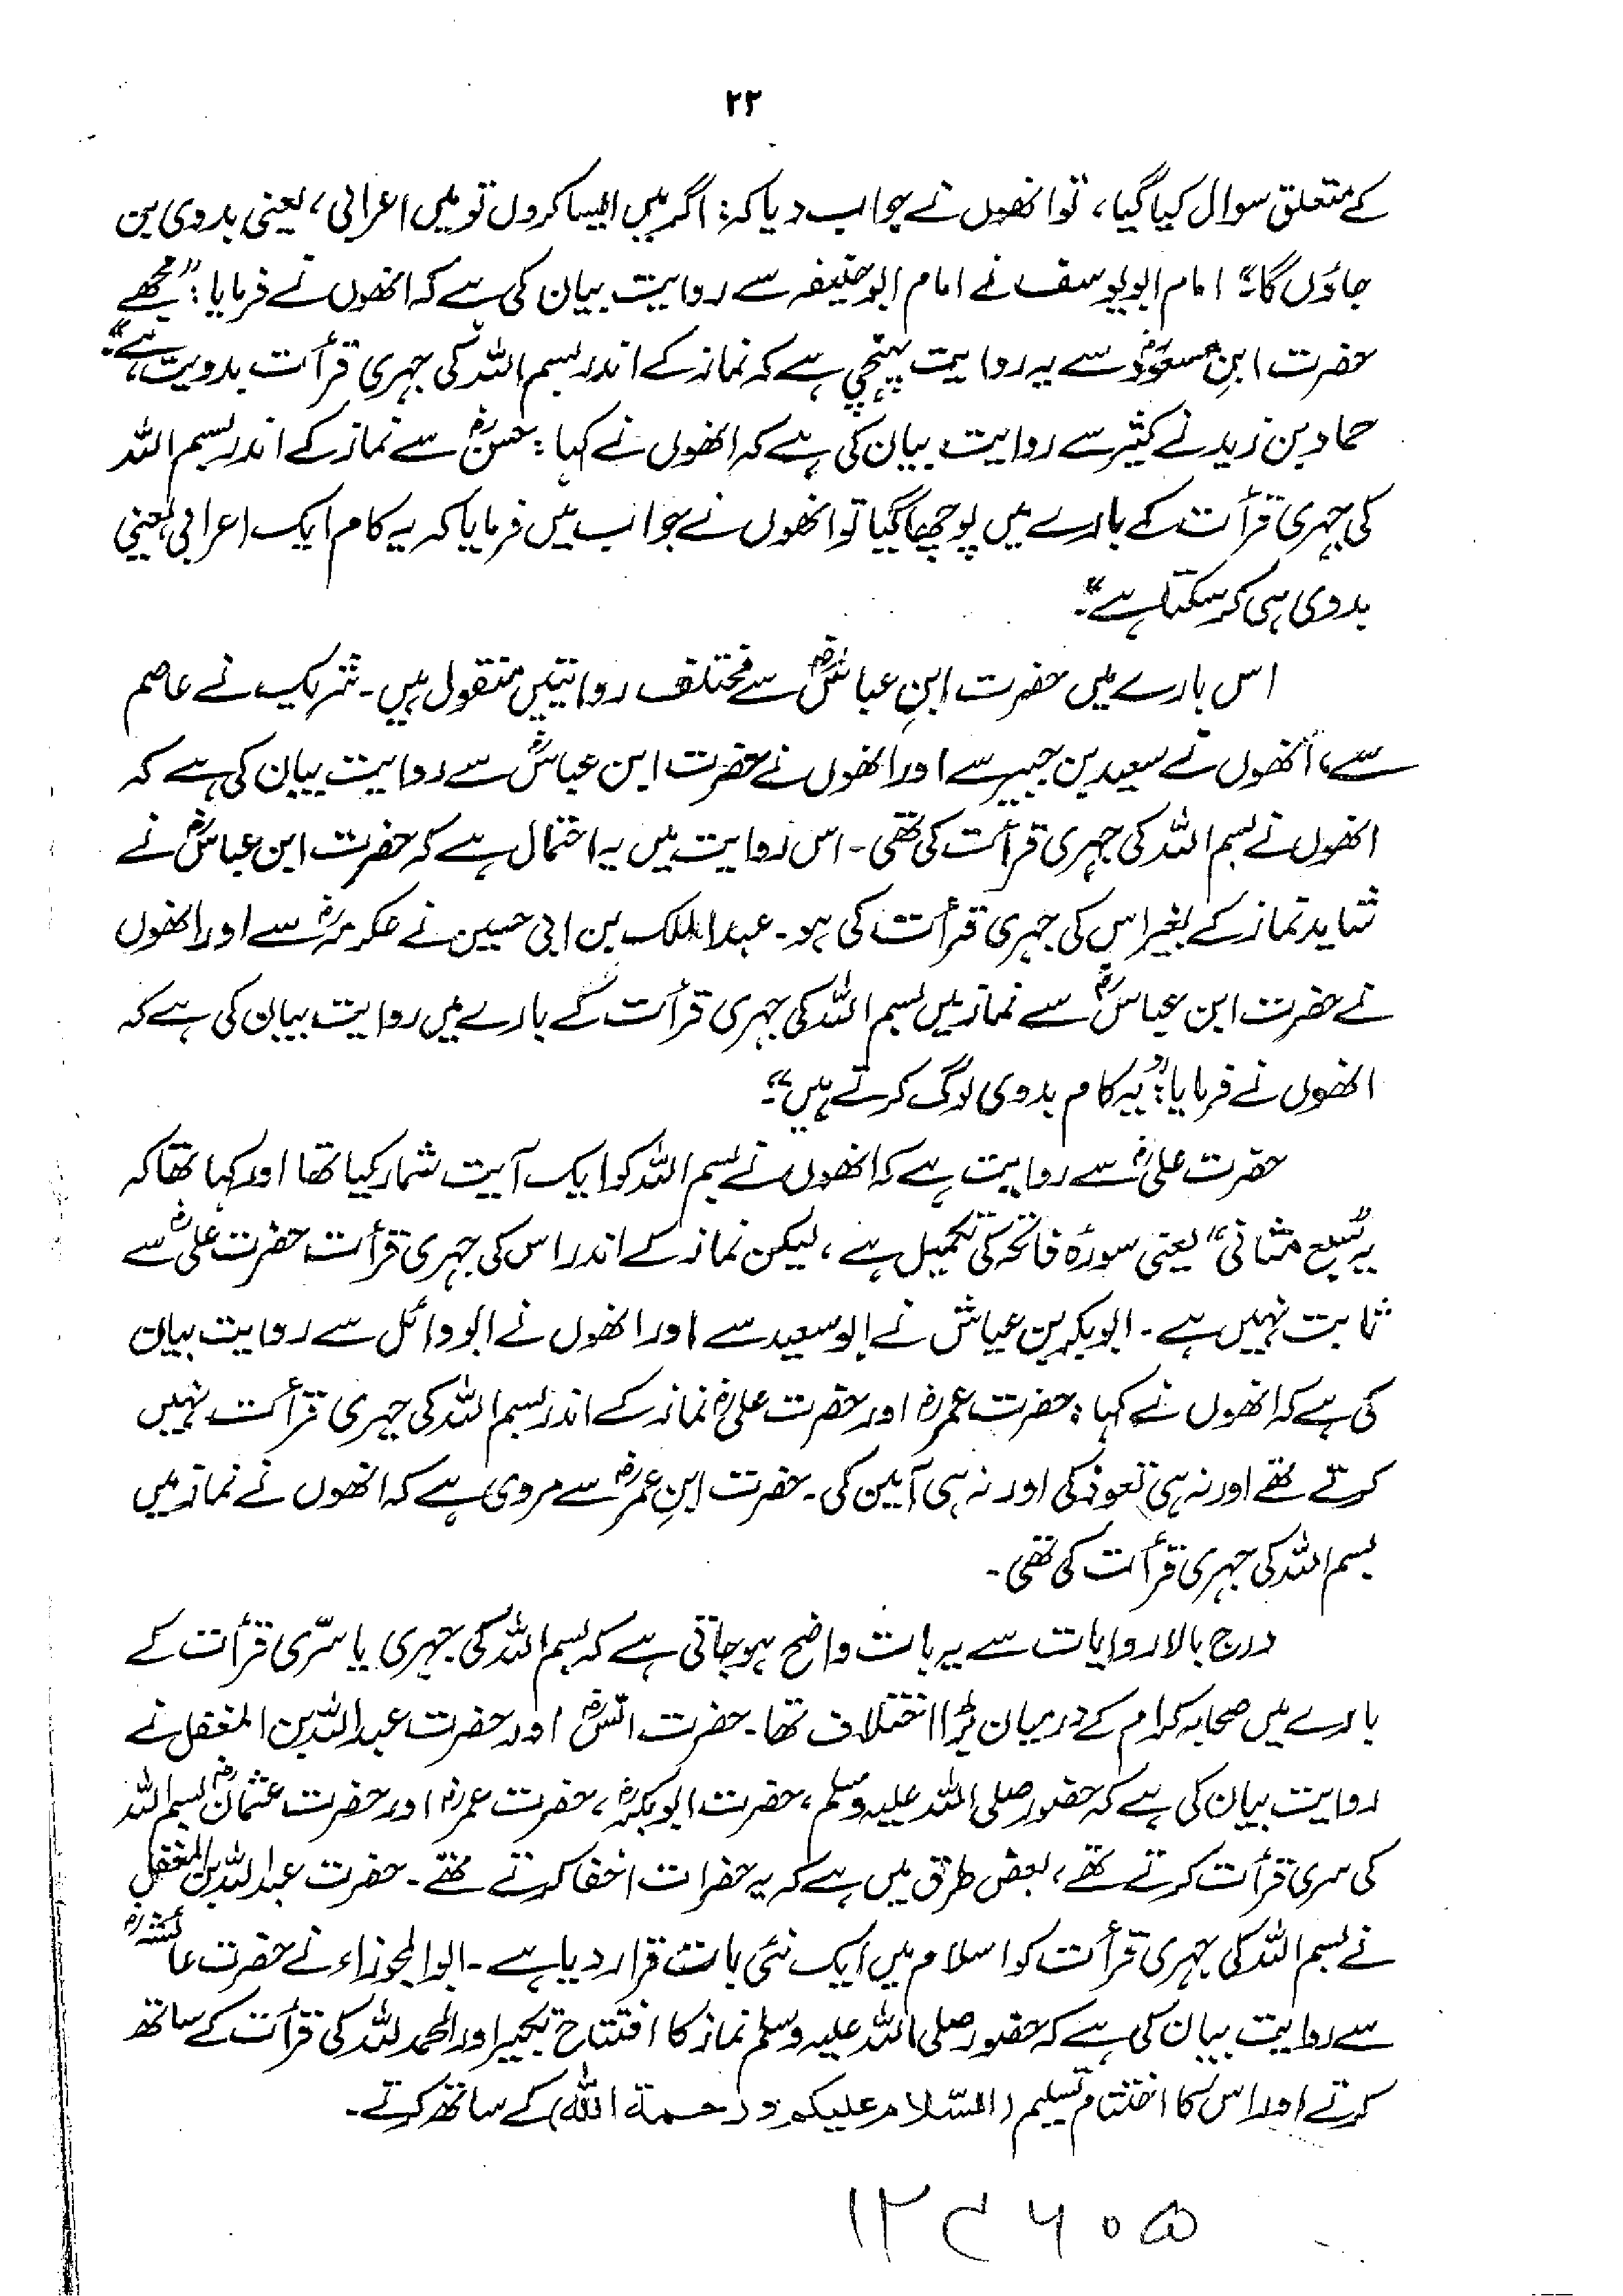 ۲۲
کے متعلق سوال کیا گیا، تو انھوں نے جواب دیا کہ: اگر میں ایسا کروں تو میں اعرابی، یعنی بدوی بن
جاؤں گا۔" امام ابو یوسف نے امام ابو حنیفہ سے روایت بیان کی ہے کہ انھوں نے فرمایا: "مجھے
حضرت ابنِ مسعودؓ سے یہ روایت پہنچی ہے کہ نماز کے اندر بسم اللہ کی جہری قرأت بدویت ہے۔"
حماد بن زید نے کثیر سے روایت بیان کی ہے کہ انھوں نے کہا: حسنؓ سے نماز کے اندر بسم اللہ
کی جہری قرأت کے بارے میں پوچھا گیا تو انھوں نے جواب میں فرمایا کہ یہ کام ایک اعرابی یعنی
بدوی ہی کر سکتا ہے"۔
اس بارے میں حضرت ابنِ عباسؓ سے مختلف روایتیں منقول ہیں۔ شریک نے عاصم
سے، انھوں نے سعید بن جبیر سے اور انھوں نے حضرت ابن عباسؓ سے روایت بیان کی ہے کہ
انھوں نے بسم اللہ کی جہری قرأت کی تھی۔ اس روایت میں یہ احتمال ہے کہ حضرت ابن عباسؓ نے
شاید نماز کے بغیر اس کی جہری قرأت کی ہو۔ عبدالملک بن ابی حسین نے عکرمہؓ سے اور انھوں
نے حضرت ابن عباسؓ سے نماز میں بسم اللہ کی جہری قرأت کے بارے میں روایت بیان کی ہے کہ
انھوں نے فرمایا: "یہ کام بدوی لوگ کرتے ہیں"۔
حضرت علیؓ سے روایت ہے کہ انھوں نے بسم اللہ کو ایک آیت شمار کیا تھا اور کہا تھا کہ
یہ "سبع مثانی" یعنی سورۂ فاتحہ کی تکمیل ہے، لیکن نماز کے اندر اس کی جہری قرأت حضرت علیؓ سے
ثابت نہیں ہے۔ ابوبکر بن عیاش نے ابو سعید سے اور انھوں نے ابو وائل سے روایت بیان
کی ہے کہ انھوں نے کہا: حضرت عمرؓ اور حضرت علیؓ نماز کے اندر بسم اللہ کی جہری قرأت نہیں
کرتے تھے اور نہ ہی تعوذ کی اور نہ ہی آمین کی۔ حضرت ابنِ عمرؓ سے مروی ہے کہ انھوں نے نماز میں
بسم اللہ کی جہری قرأت کی تھی۔
درج بالا روایات سے یہ بات واضح ہو جاتی ہے کہ بسم اللہ کی جہری یا سرّی قرأت کے
بارے میں صحابہ کرام کے درمیان بڑا اختلاف تھا۔ حضرت انسؓ اور حضرت عبداللہ بن المغفل نے
روایت بیان کی ہے کہ حضور صلی اللہ علیہ وسلم، حضرت ابوبکرؓ، حضرت عمرؓ اور حضرت عثمانؓ بسم اللہ
کی سری قرأت کرتے تھے، بعض طرق میں ہے کہ یہ حضرات اخفا کرتے تھے۔ حضرت عبداللہ بن المغفل
نے بسم اللہ کی جہری قرأت کو اسلام میں ایک نئی بات قرار دیا ہے۔ ابوالجوزاء نے حضرت عائشہؓ
سے روایت بیان کی ہے کہ حضور صلی اللہ علیہ وسلم نماز کا افتتاح تکبیر اور الحمد للہ کی قرأت کے ساتھ
کرتے اور اس کا اختتام تسلیم (السّلام علیکم ورحمة اللہ) کے ساتھ کرتے۔